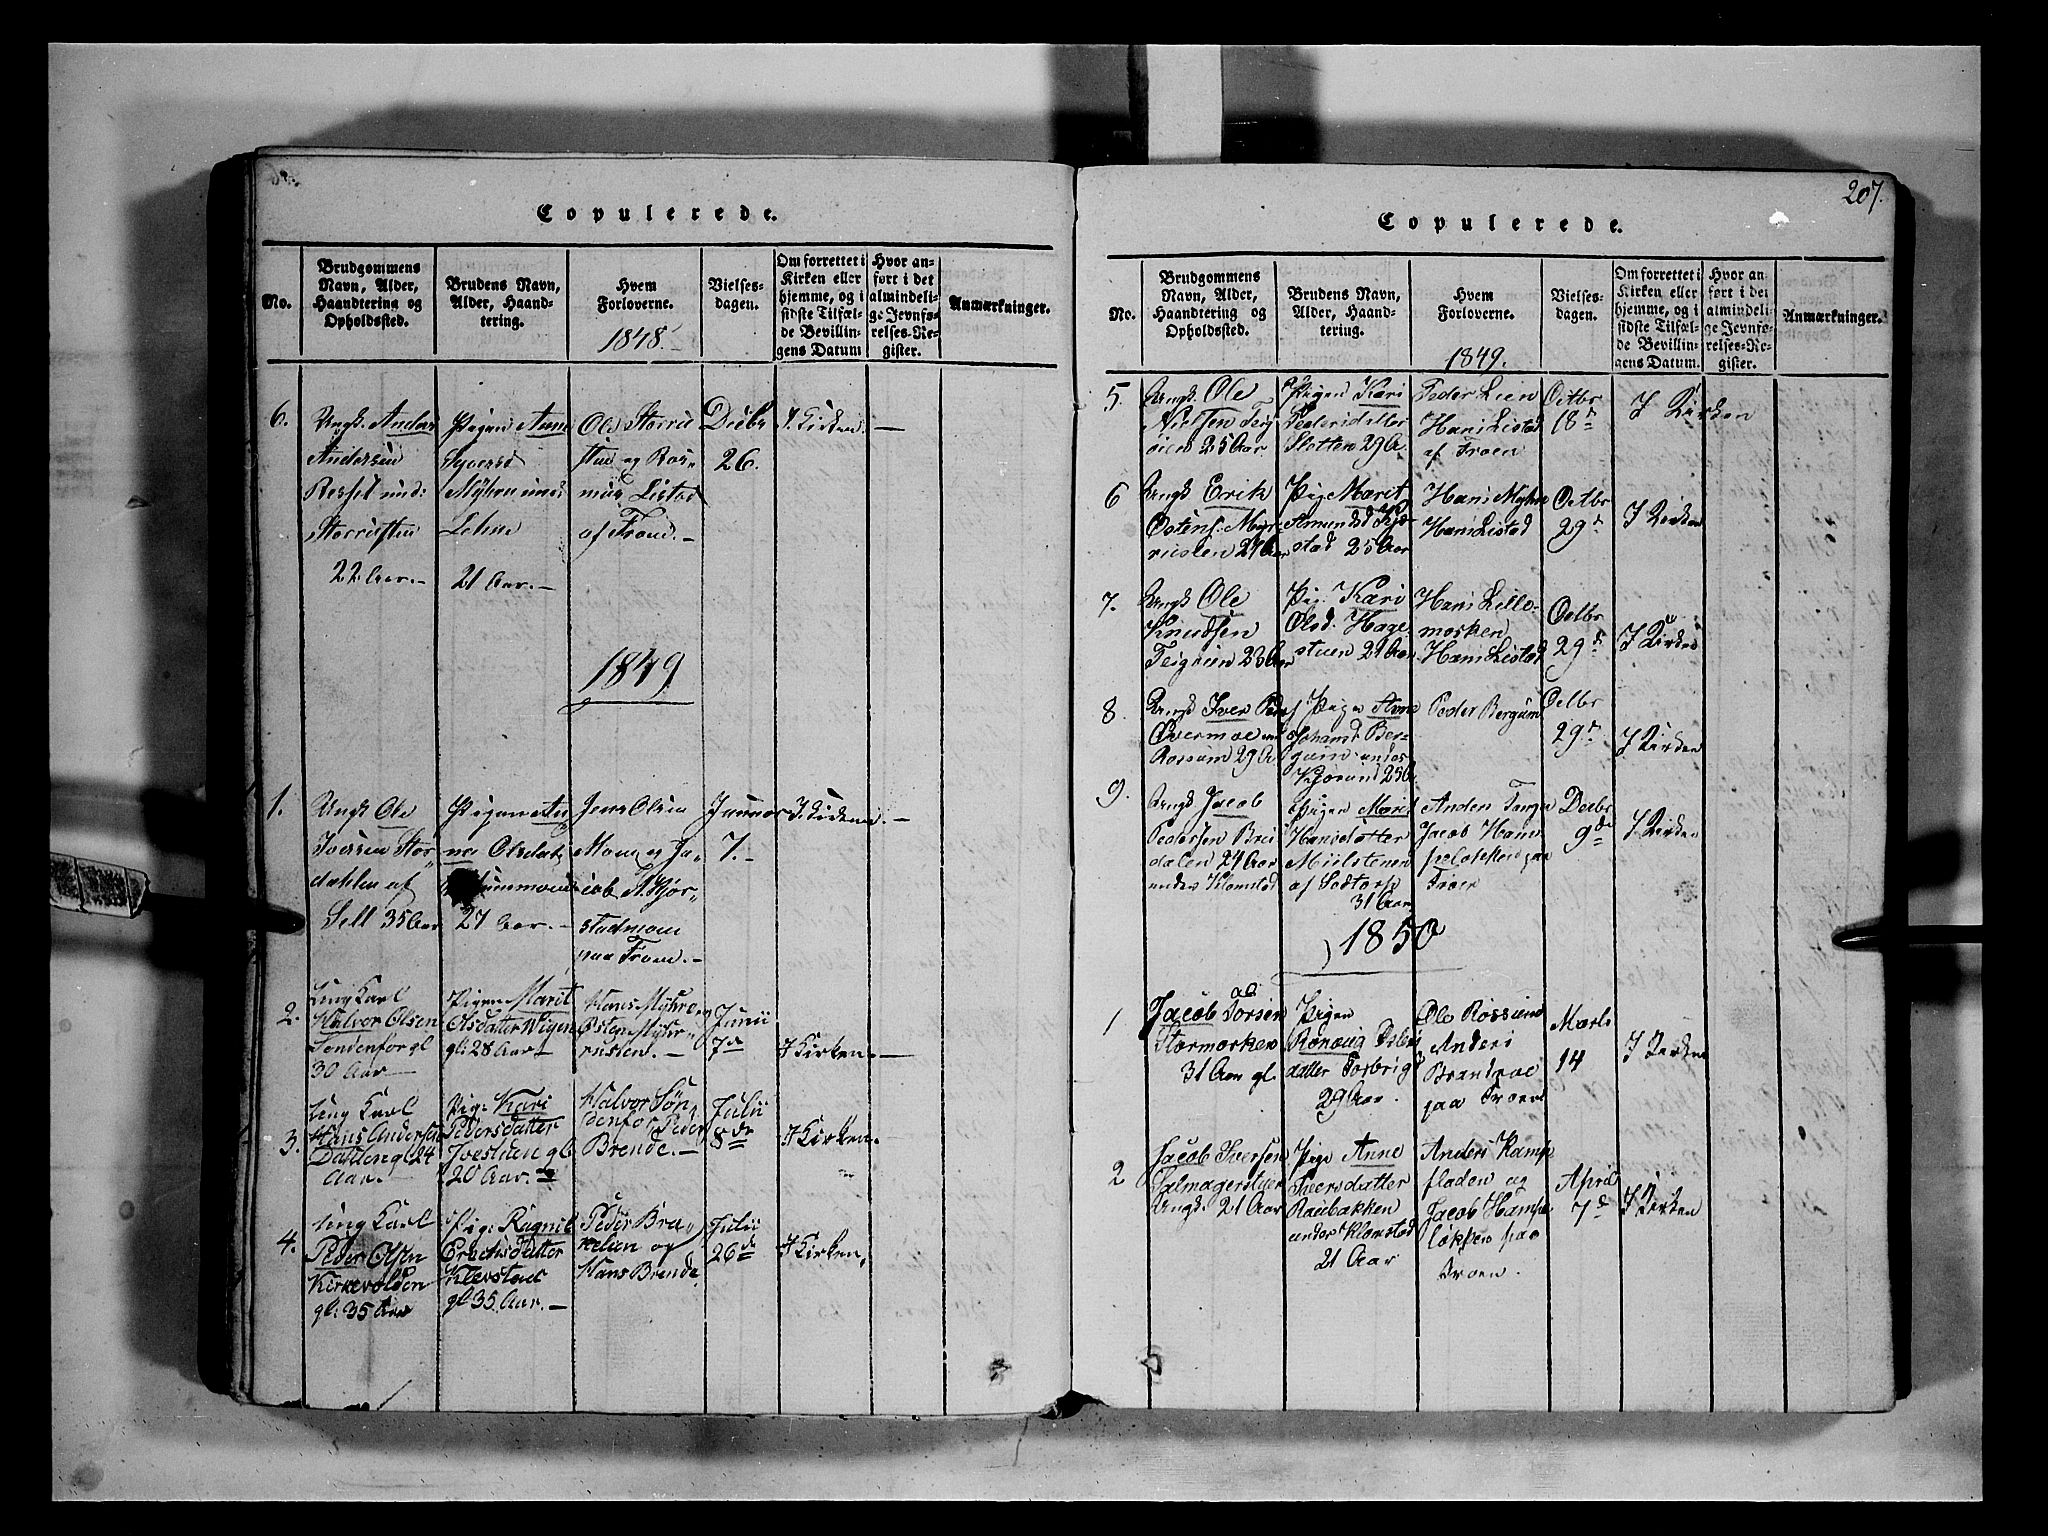 Copulerede.
No.
Brudgommens Navn, Alder, Haandtering og Opholdssted.
Brudens Navn, Alder, Haandtering.
Hvem Forloverne.
1848.
Vielsesdagen.
Om forrettet i Kirken eller hjemme, og i sidste Tilfælde Bevillingens Datum
Hvor anført i det almindelige Jevnførelses-Register.
Anmærkninger.
6.
Ungk. Anders
Andersen
22 Aar.
Pigen Anne
Myhren
21 Aar.
Ole
og Rasmus Listad
af Froen.
Decbr
26.
I. Kirken.
1849
1.
Ungk Ole
Iversen Stordahlen af
Sell 35 Aar
Pigen Anna Olsdatr
27 Aar.
Jens Olsen
Moen og Jacob A. Kjørstadmoen
paa Froen.
Januar
7.
I. Kirken.
2.
Ung Karl
Halvor Olsen
Søndenfor gl
30 Aar
Pigen Marit
Olsdatter Wigen
gl: 28 Aar
Hans Myhre og
Østen Myhrrusten.
Junii
7de
I Kirken.
3.
Ung Karl
Hans Andersen
Dahlen gl 24
Aar.
Pig: Kari
Pedersdatter
gl
20 Aar.
Halvor Søndenfor, Peder
Brende.
Julii
8de
I Kirken.
4.
Ung Karl
Peder Olsen
Kirkevolden
gl: 35 Aar
Pig: Ragnil
Erichsdatter
Klevstad
gl 35 Aar.
Peder Brækelien og
Hans Brende
Julii
26de
I Kirken.
207.
Copulerede.
No.
Brudgommens Navn, Alder, Haandtering og Opholdssted.
Brudens Navn, Alder, Haandtering.
Hvem Forloverne.
1849.
Vielsesdagen.
Om forrettet i Kirken eller hjemme, og i sidste Tilfælde Bevillingens Datum.
Hvor anført i det almindelige Jevnførelses-Register.
Anmærkninger.
5
Ungk Ole
Nielsen
25 Aar
Pigen Kari
Pedersdatter
Slotten 29 A.
Peder Lien
Hans Listad
af Froen
Octbr
18d
I Kirken
6
Ungk Erik
Ostens. Myrruslen 27 Aar
Pige Marit
Amundsd Kjørstad 25 Aar
Hans Myhre
Hans Listad
Octbr
29d
I Kirken
7.
Ungk Ole
Knudsen
Teigruen 23 Aar
Pig. Kari
Olsd. Hagestuen 21 Aar
Hans Lillemorken
Hans Listad
Octbr
29d
I Kirken
8.
Ungk Iver Peders
Øvermoe und
Rossum 29 A
Pigen Anne
Johansd Bergum under
Peder Bergum
Octbr
29d
I Kirken
9.
Ungk Jacob
Pedersen Bredalen 24 Aar
under Klomstad
Pigen Marit
Hansdatter
Mielstenen
af Sødtorp
31 Aar
Jacob Hams
paa
Froen
Decbr
9de
I Kirken
1850
1
Jacob Torsen
Stormorken
31 Aar gl.
Pigen
Rønnaug
29 Aar.
Ole Rossum
Anders
paa Froen
Marts
14
I Kirken
2
Jacob Iversen
Ungk. 21 Aar
Pige Anne
Iversdatter
Raubakken
under Klomstad
21 Aar
Anders Kampfladen og
Jacob Hampeløkken paa
Froen.
April
7d
I Kirken